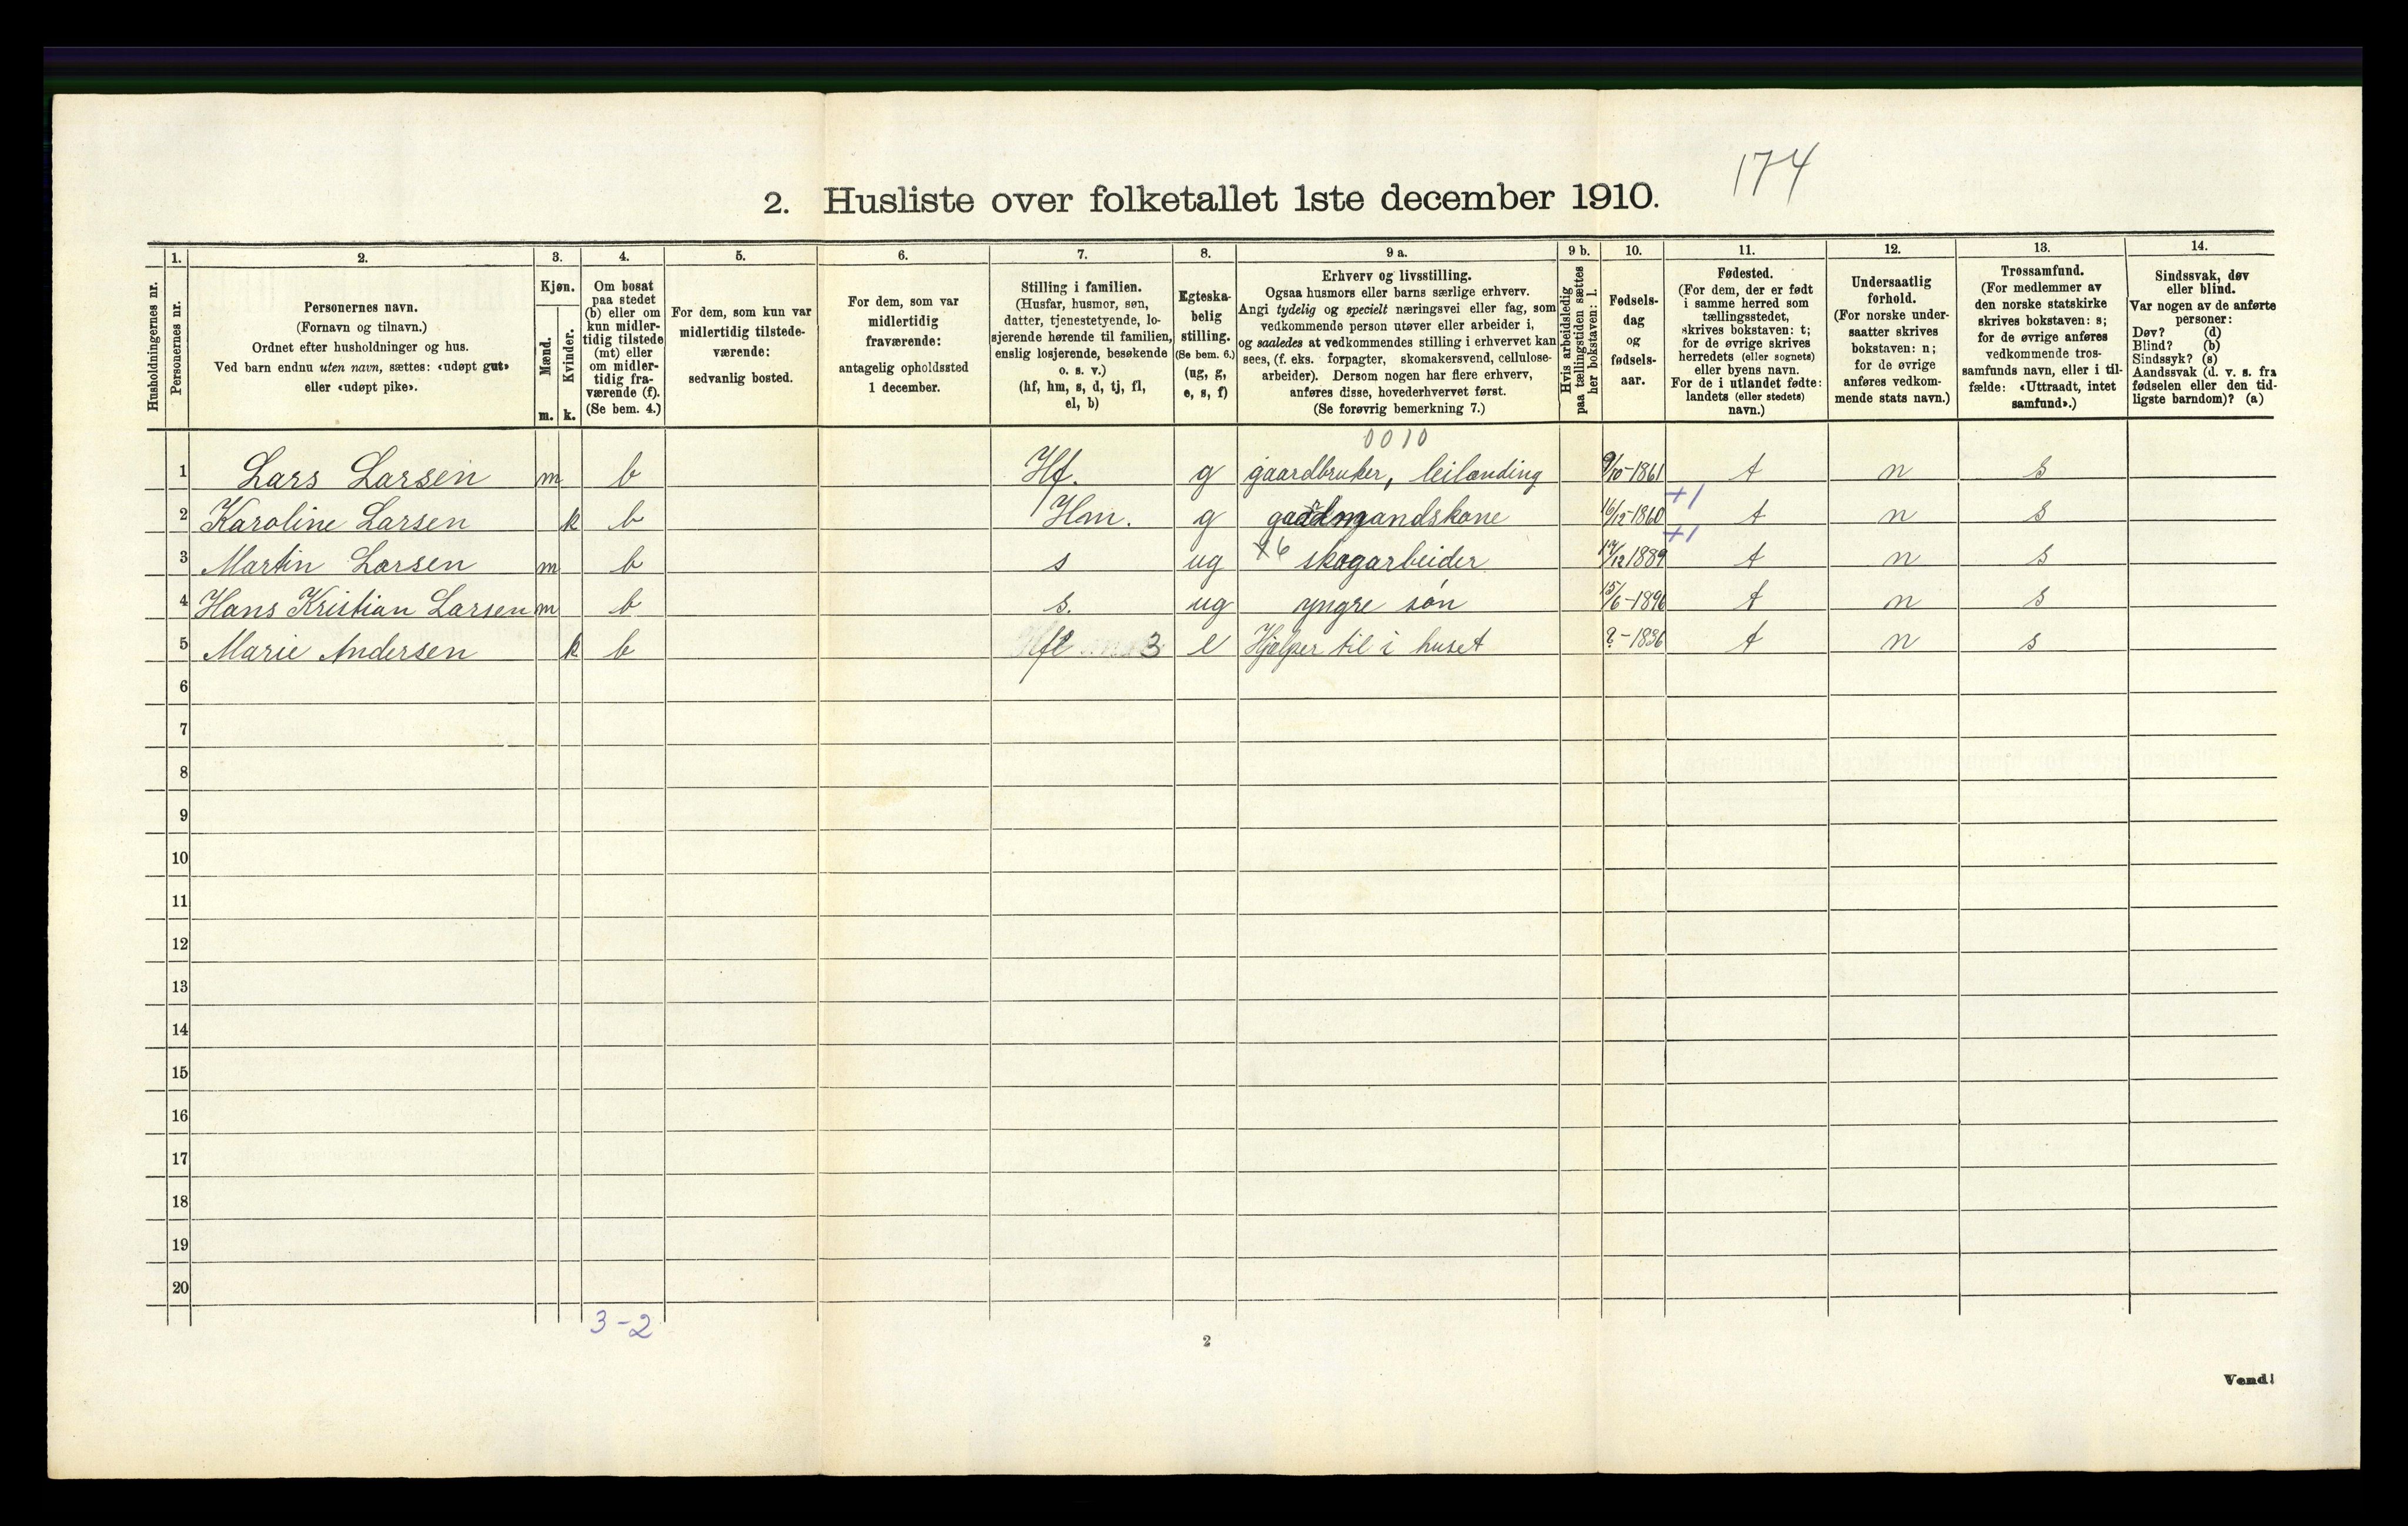 174
2. Husliste over folketallet 1ste december 1910.
Husholdningernes nr.
1. Personernes nr.
2. Personernes navn.
(Fornavn og tilnavn.)
Ordnet efter husholdninger og hus.
Ved barn endnu uten navn, sættes: «udøpt gut»
eller «udøpt pike».
3. Kjøn.
Mænd. m.
Kvinder. k.
4. Om bosat
paa stedet
(b) eller om
kun midler-
tidig tilstede
(mt) eller
om midler-
tidig fra-
værende (f).
(Se bem. 4.)
5. For dem, som kun var
midlertidig tilstede-
værende:
sedvanlig bosted.
6. For dem, som var
midlertidig
fraværende:
antagelig opholdssted
1 december.
7. Stilling i familien.
(Husfar, husmor, søn,
datter, tjenestetyende, lo-
sjerende hørende til familien,
enslig losjerende, besøkende
o. s. v.)
(hf, hm, s, d, tj, fl,
el, b)
8. Egteska-
belig
stilling.
(Se bem. 6.)
(ug, g,
e, s, f)
9 a. Erhverv og livsstilling.
Ogsaa husmors eller barns særlige erhverv.
Angi tydelig og specielt næringsvei eller fag, som
vedkommende person utøver eller arbeider i,
og saaledes at vedkommendes stilling i erhvervet kan
sees, (f. eks. forpagter, skomakersvend, cellulose-
arbeider). Dersom nogen har flere erhverv,
anføres disse, hovederhvervet først.
(Se forøvrig bemerkning 7.)
9 b. Hvis arbeidsledig
paa tællingstiden sættes
her bokstaven: l.
10. Fødsels-
dag
og
fødsels-
aar.
11. Fødested.
(For dem, der er født
i samme herred som
tællingsstedet,
skrives bokstaven: t;
for de øvrige skrives
herredets (eller sognets)
eller byens navn.
For de i utlandet fødte:
landets (eller stedets)
navn.)
12. Undersaatlig
forhold.
(For norske under-
saatter skrives
bokstaven: n;
for de øvrige
anføres vedkom-
mende stats navn.)
13. Trossamfund.
(For medlemmer av
den norske statskirke
skrives bokstaven: s;
for de øvrige anføres
vedkommende tros-
samfunds navn, eller i til-
fælde: «Uttraadt, intet
samfund».)
14. Sindssvak, døv
eller blind.
Var nogen av de anførte
personer:
Døv? (d)
Blind? (b)
Sindssyk? (s)
Aandssvak (d. v. s. fra
fødselen eller den tid-
ligste barndom)? (a)
0010
1 Lars Larsen m b Hf. g gaardbruker, leilænding 9/10-1861 t n s
+1
2 Karoline Larsen k b Hm. g gaardmandskone 16/12-1860 t n s
+1
3 Martin Larsen m b s ug skogarbeider 1889 t n s
4 Hans Kristian Larsen m b s. ug yngre søn 15/6-1896 t n s
5 Marie Andersen k b fl 3 e Hjelper til i huset ?-1836 t n s
6
7
8
9
10
11
12
13
14
15
16
17
18
19
20
3-2
2
Vend!